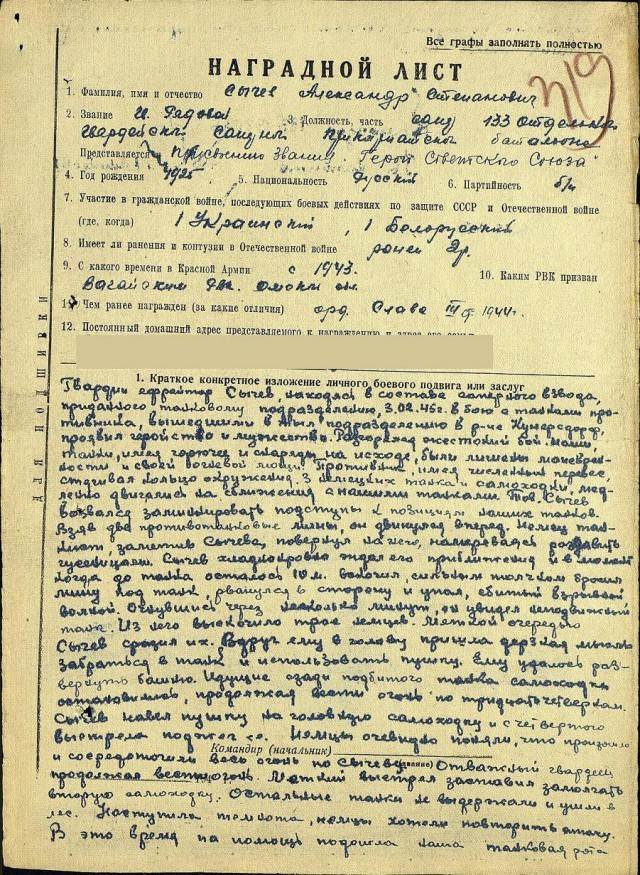 Все графы заполнять полностью
НАГРАДНОЙ ЛИСТ
319
1. Фамилия, имя и отчество Сычев Александр Степанович
2. Звание Рядовой 3. Должность, часть 133 отдельного
гвардейск. батальона
Представляется к званию "Герой Советского Союза"
4. Год рождения 1925 5. Национальность Русский 6. Партийность б/п
7. Участие в гражданской войне, последующих боевых действиях по защите СССР и Отечественной войне
(где, когда) 1 Украинский, 1 Белорусский
8. Имеет ли ранения и контузии в Отечественной войне ранен
9. С какого времени в Красной Армии с 1943. 10. Каким РВК призван
Вагайским Омской обл.
11. Чем ранее награжден (за какие отличия) орд. Слава III ст. 1944 г.
12. Постоянный домашний адрес представляемого к награждению и адрес его семьи
ДЛЯ ПОДШИВКИ
1. Краткое конкретное изложение личного боевого подвига или заслуг
Гвардии ефрейтор Сычев, находясь в составе саперного взвода,
приданного танковому подразделению, 3.02.45г. в бою с танками про-
тивника, вышедшими в тыл подразделению в р-не Кунерсдорф,
проявил геройство и мужество. Разгорелся ожесточенный бой. Наши
танки, имея горючее и снаряды на исходе, были лишены маневрен-
ности и своей огневой мощи. Противник, имея численный перевес,
стягивал кольцо окружения. 3 немецких танка и самоходки, мед-
ленно двигались на сближение с нашими танками. Тов. Сычев
вызвался заминировать подступы к позициям наших танков.
Взяв две противотанковые мины, он двинулся вперед. Немец тан-
кист, заметив Сычева, повернул на него, намереваясь раздавить
гусеницами. Сычев хладнокровно ждал его приближения и в момент
когда до танка осталось 10 м. вскочил, сильным толчком бросил
мину под танк, рванулся в сторону и упал, сбитый взрывной
волной. Очнувшись через несколько минут, он увидел неподвижный
танк. Из него выскочило трое немцев. Меткой очередью
Сычев сразил их. Вдруг ему в голову пришла дерзкая мысль
забраться в танк и использовать пушку. Ему удалось раз-
вернуть башню. Идущие сзади подбитого танка самоходки
остановились, продолжая вести огонь по тридцатьчетверкам.
Сычев навел пушку на головную самоходку и с четвертого
выстрела поджег ее. Немцы очевидно поняли, что произошло
Командир (начальник)
и сосредоточили весь огонь по Сычеву. (звание) Отважный гвардеец
продолжал вести огонь. Меткий выстрел заставил замолчать
вторую самоходку. Остальные танки не выдержали и ушли в
лес. Наступила темнота, немцы хотели повторить атаку.
В это время на помощь подошла наша танковая рота